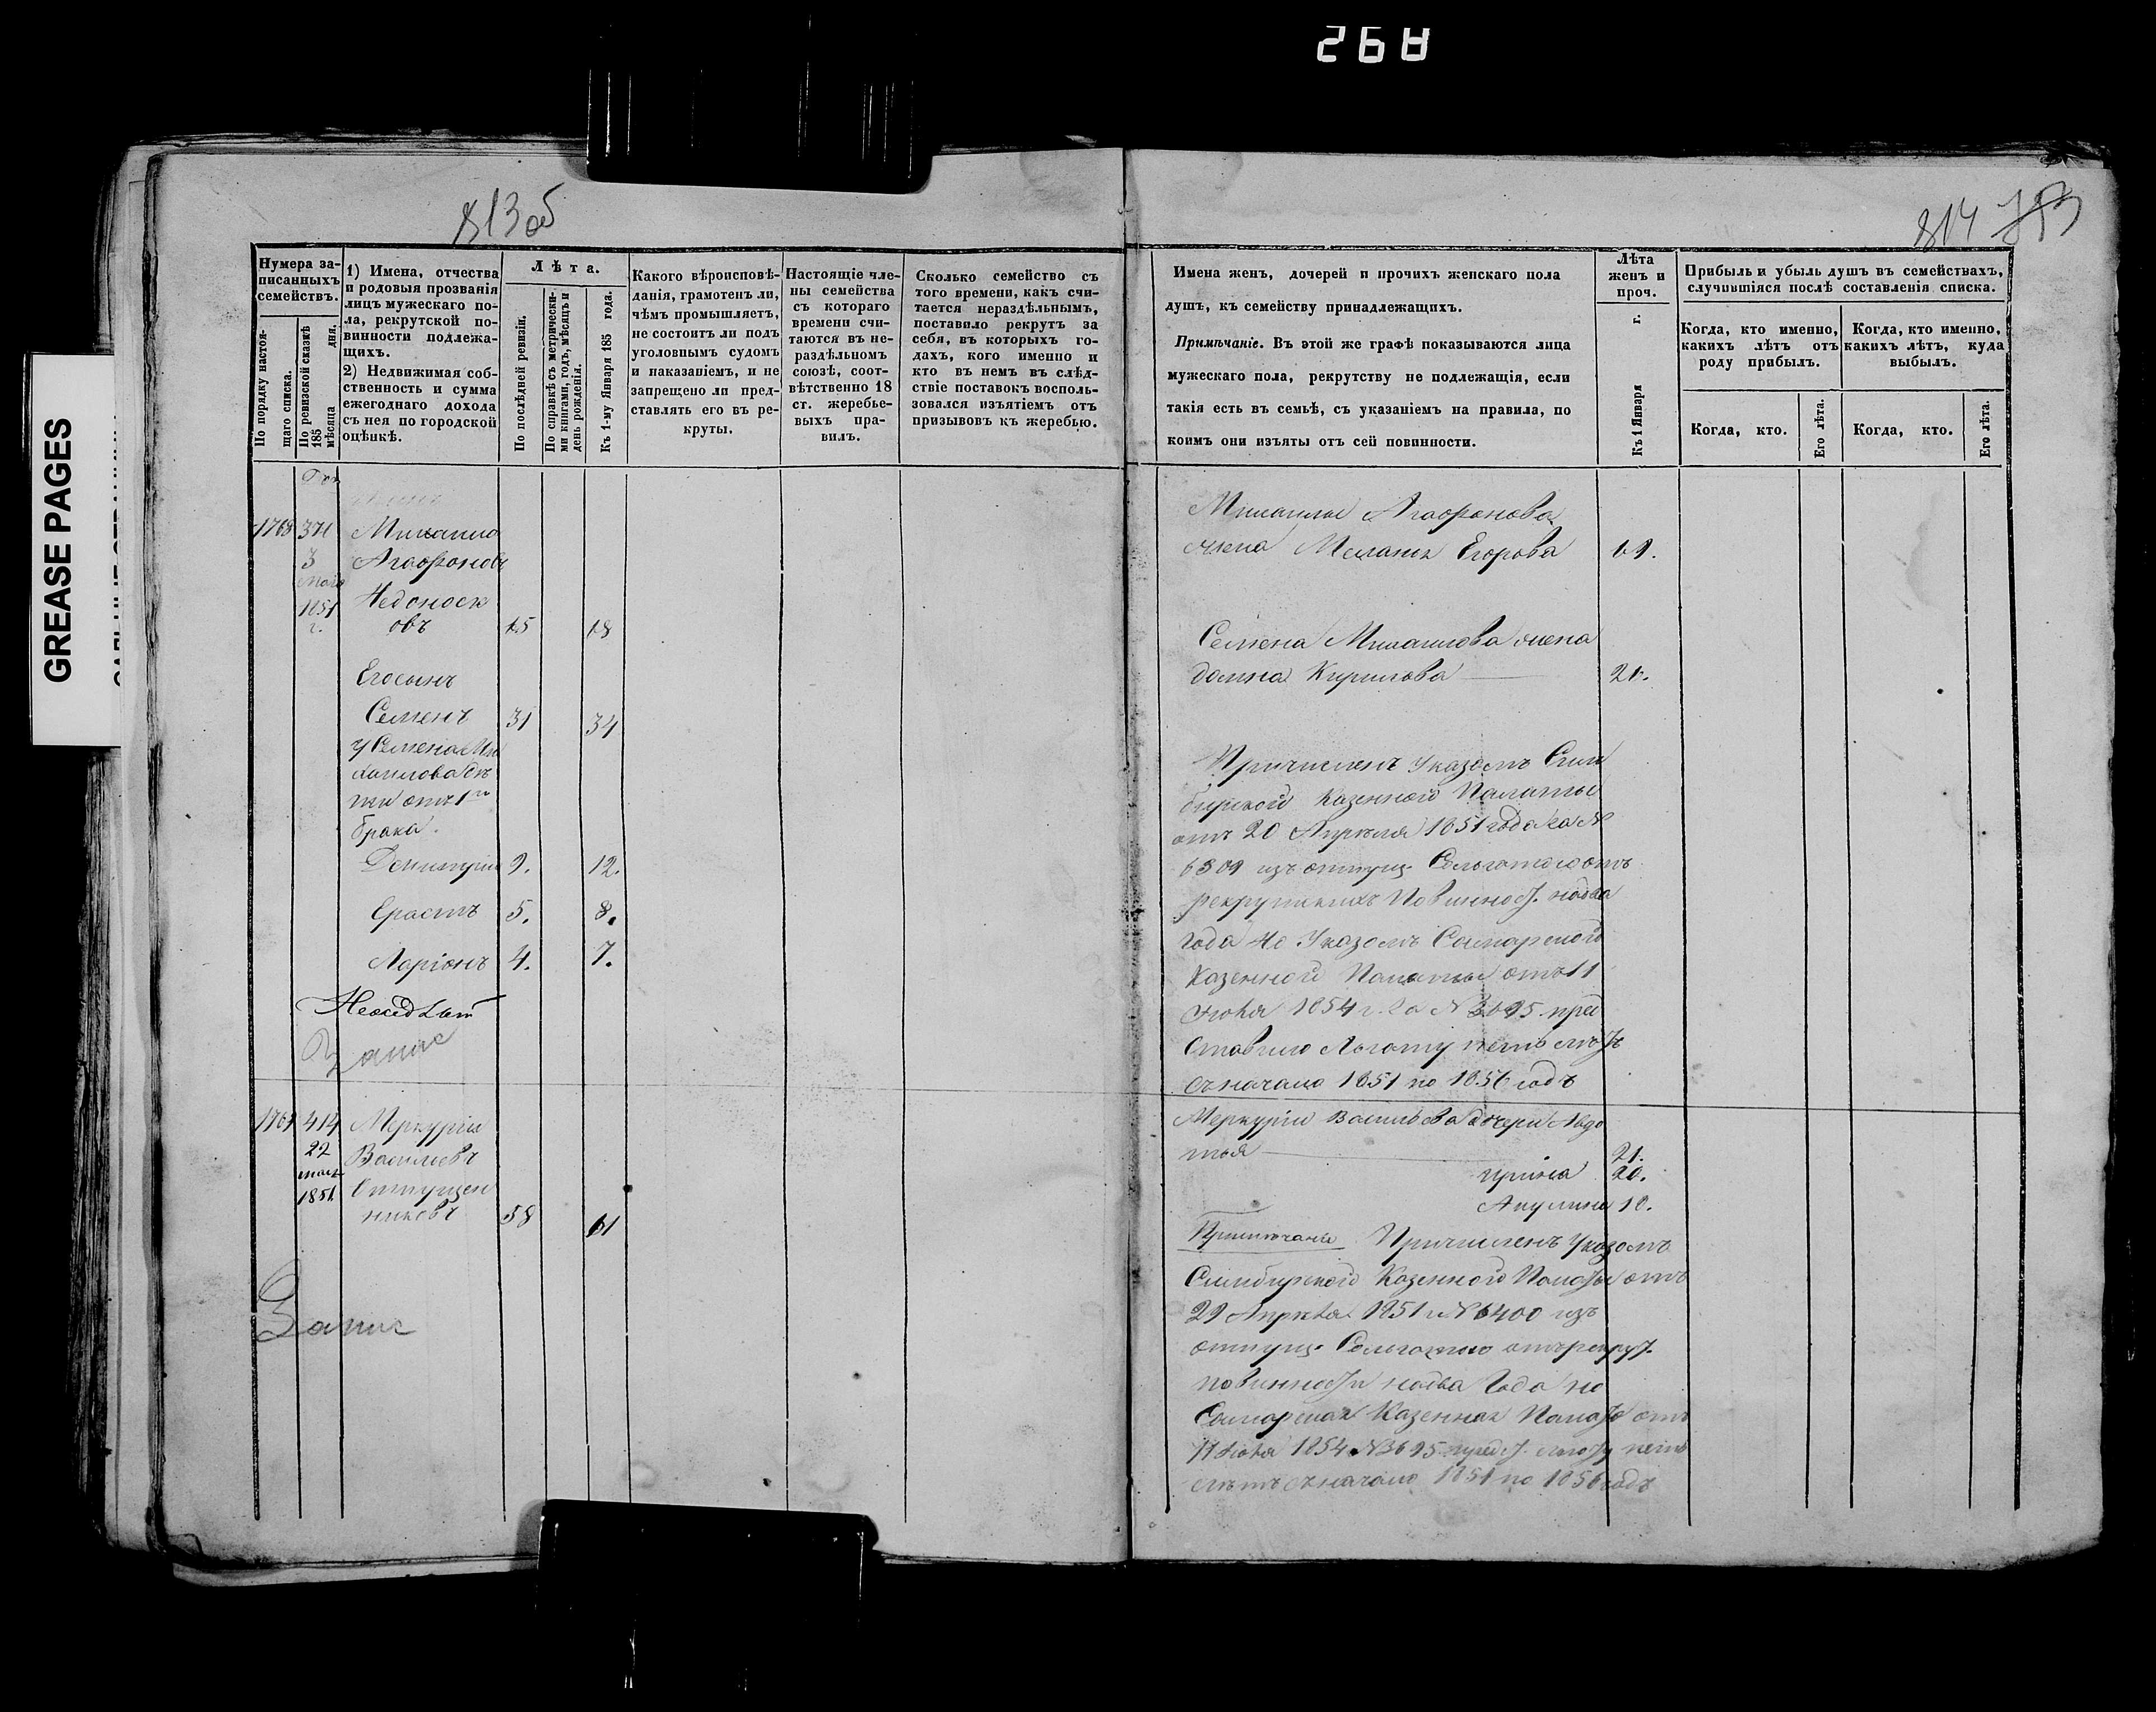 268
GREASE PAGES
813 об
Нумера за-
писанныхъ
семействъ.
По порядку настоя-
щаго списка.
По ревизской сказкѣ
185 дня.
мѣсяца
1) Имена, отчества
и родовыя прозванія
лицъ мужескаго по-
ла, рекрутской по-
винности подлежа-
щихъ.
2) Недвижимая соб-
ственность и сумма
ежегоднаго дохода
съ нея по городской
оцѣнкѣ.
Лѣта.
По послѣдней ревизіи.
По справкѣ съ метрически-
ми книгами, годъ, мѣсяцъ и
день рожденія.
Къ 1-му Января 185 года.
Какого вѣроисповѣ-
данія, грамотенъ ли,
чѣмъ промышляетъ,
не состоитъ ли подъ
уголовнымъ судомъ
и наказаніемъ, и не
запрещено ли пред-
ставлять его въ ре-
круты.
Настоящіе чле-
ны семейства
съ котораго
времени счи-
таются въ не-
раздѣльномъ
союзѣ, соот-
вѣтственно 18
ст. жеребье-
выхъ пра-
вилъ.
Сколько семейство съ
того времени, какъ счи-
тается нераздѣльнымъ,
поставило рекрутъ за
себя, въ которыхъ го-
дахъ, кого именно и
кто въ немъ въ слѣд-
ствіе поставокъ восполь-
зовался изъятіемъ отъ
призывовъ къ жеребью.
1768 371 Михаило
3 Агафоновъ
Мая
1851 Недоноск
г. овъ 15 18
Его сынъ
Семенъ 31 34
у Семена Ми
хаилова дѣ
ти отъ 1го
брака.
Демитрій 9. 12.
Ерастъ 5. 8.
Ларіонъ 4. 7.
414 Меркурій
22 Васильевъ
мая
1851 Отпущен
никовъ 58 61
814
Имена женъ, дочерей и прочихъ женскаго пола
душъ, къ семейству принадлежащихъ.
Примѣчаніе. Въ этой же графѣ показываются лица
мужескаго пола, рекрутству не подлежащія, если
такія есть въ семьѣ, съ указаніемъ на правила, по
коимъ они изъяты отъ сей повинности.
Лѣта
женъ и
проч.
Къ 1 Января г.
Прибыль и убыль душъ въ семействахъ,
случившіяся послѣ составленія списка.
Когда, кто именно,
какихъ лѣтъ отъ
роду прибылъ.
Когда, кто именно,
какихъ лѣтъ, куда
выбылъ.
Когда, кто.
Его лѣта.
Когда, кто.
Его лѣта.
Михаилы Агафонова
жена Меланья Егорова
Семена Михаилова жена
Домна Кирилова
Причисленъ Указомъ Сим
бирской Казенной Палаты
отъ 20 Апреля 1851 года за №
6309 изъ отпущ. Сельготою отъ
рекрутскихъ Повинност. на два
года Но Указомъ Самарской
Казенной Палаты отъ 11
Июня 1854 г. за № 3695 пред
ставлено Льготу пять летъ
съ начала 1851 по 1856 годъ
Меркурія Васильева дочери Авдо
тья 21.
Ирина 20.
Акулина 10.
Примѣчаніе Причисленъ Указомъ
Симбирской Казенной Палаты отъ
29 Апреля 1851 № 6400 изъ
отпущ. Сельготою отъ рекрут.
повинности на два года но
Самарская Казенная Палата отъ
11 Июня 1854 № 3695 предст. льготу пять
летъ съ начала 1851 по 1856 годъ